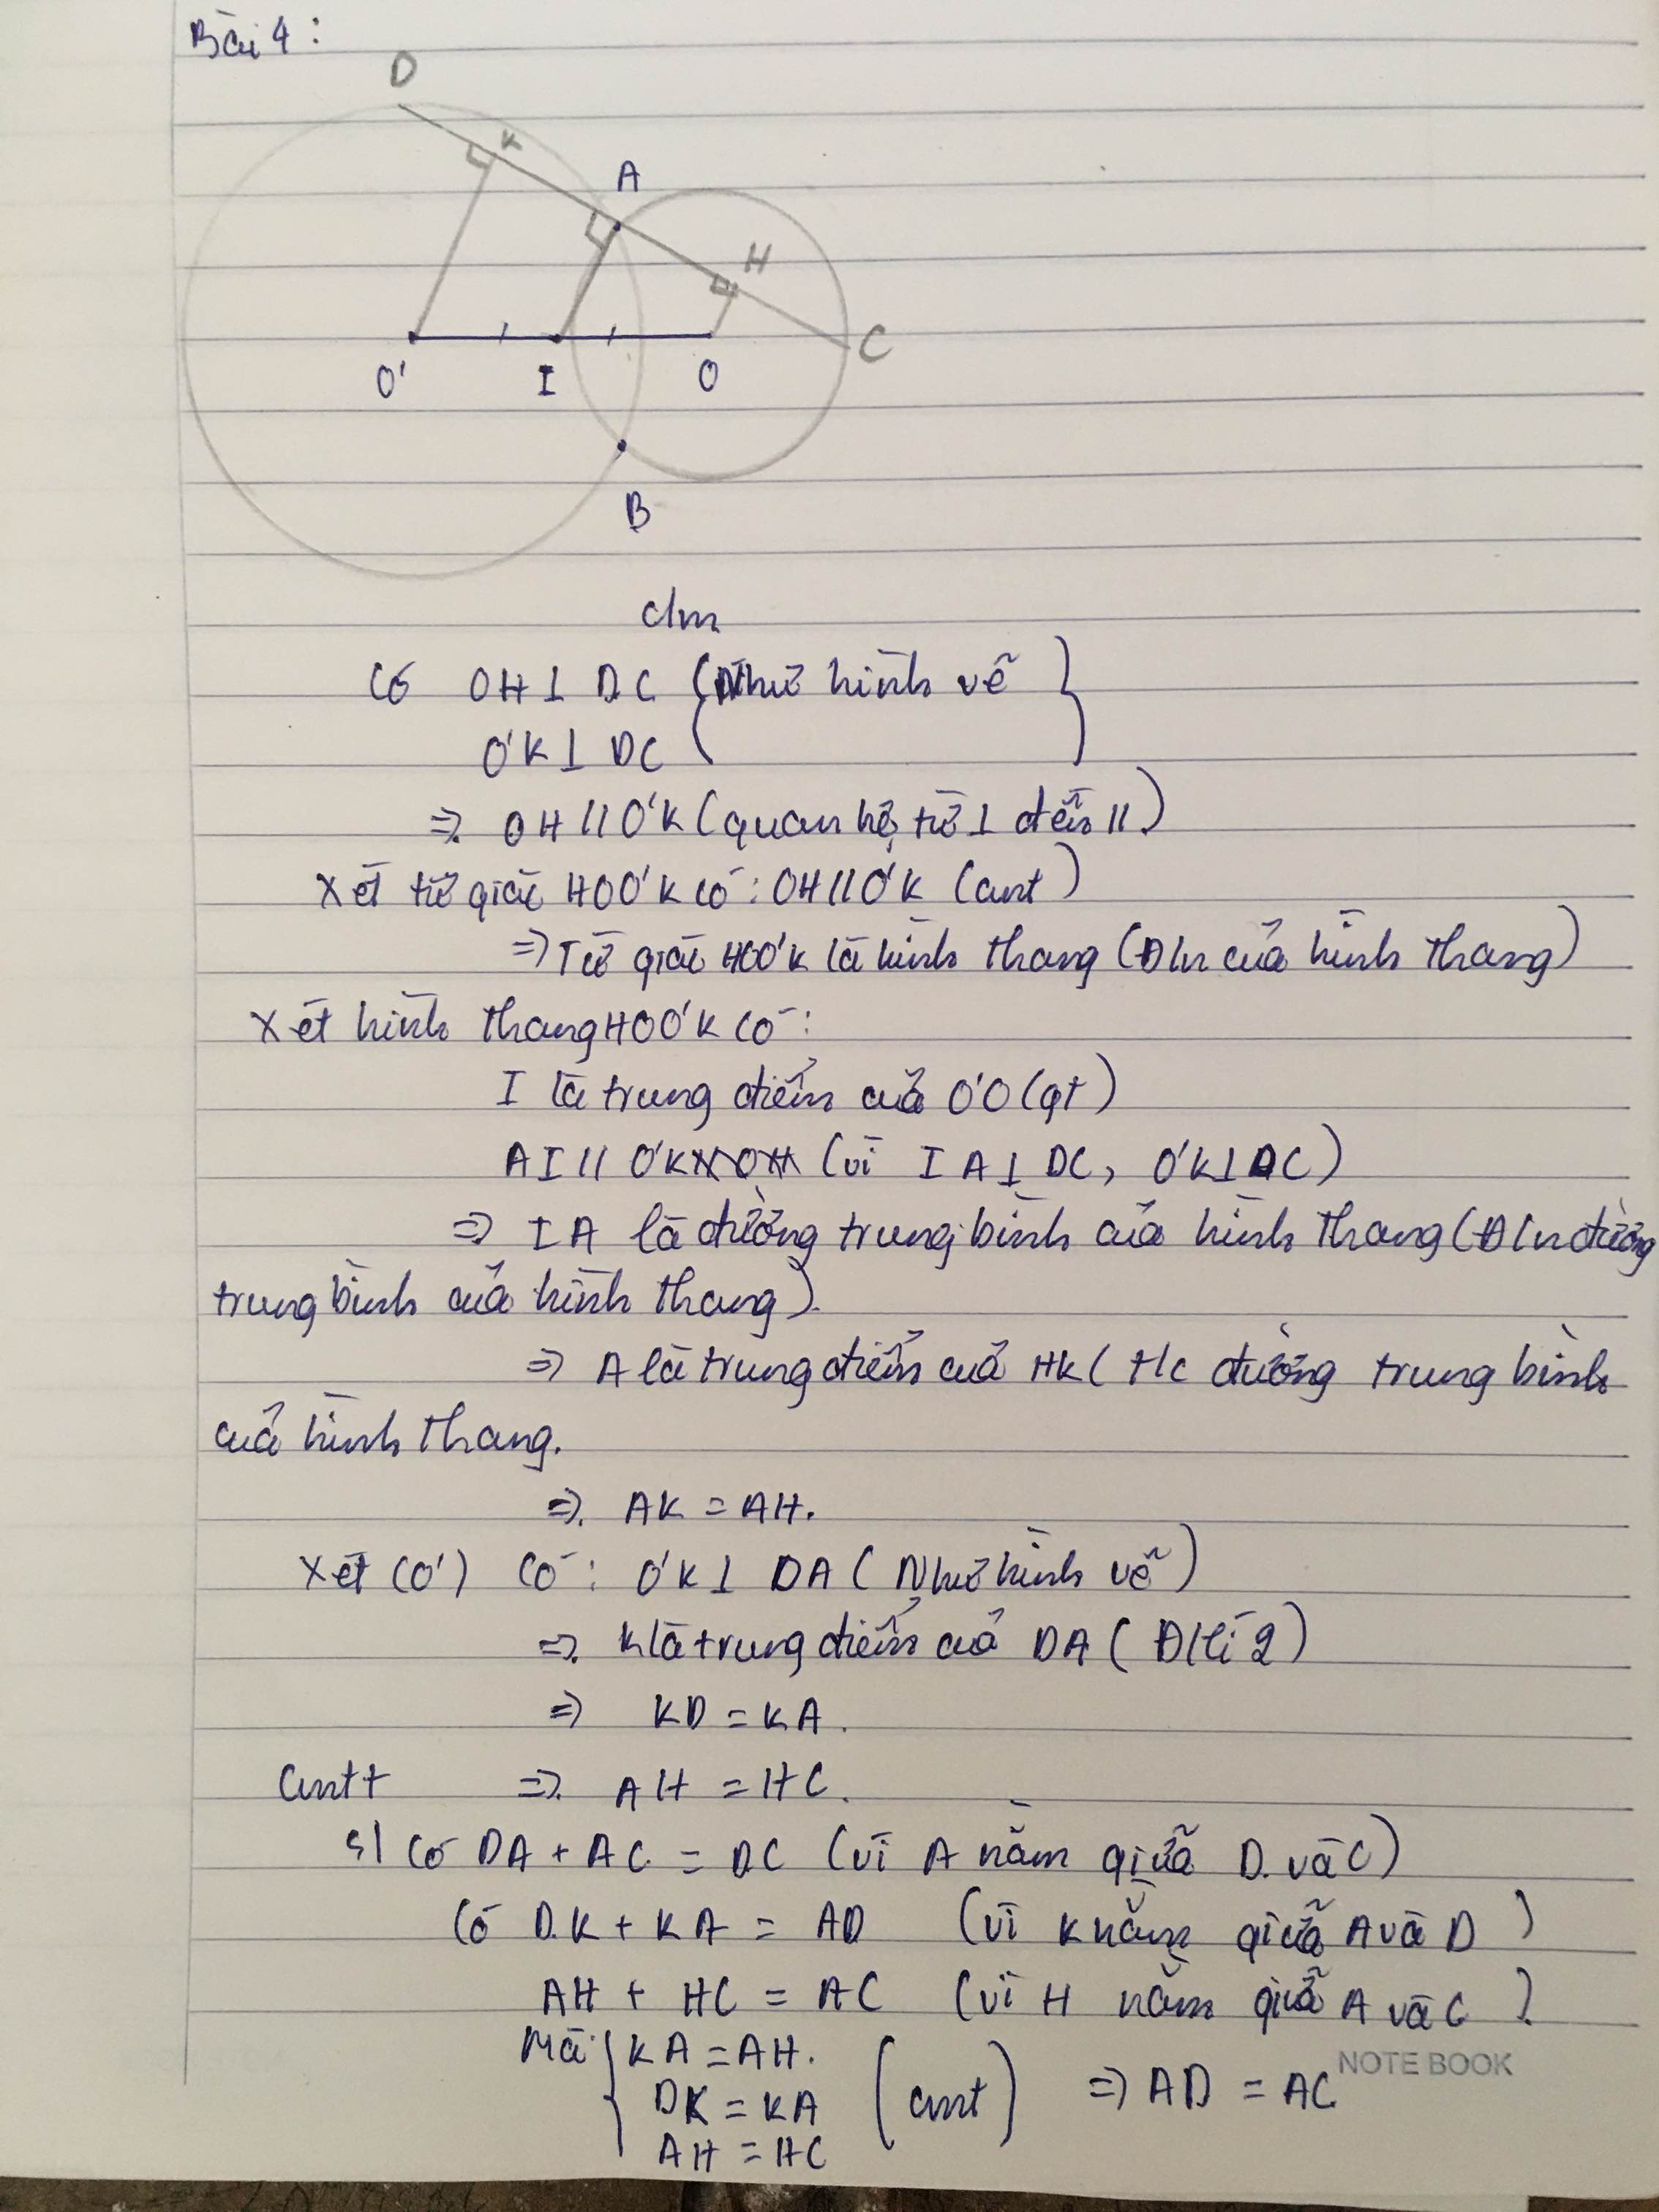 Bài 4:
D
K
A
H
C
O'
I
O
B
c/m
Có OH ⊥ DC (Như hình vẽ
O'K ⊥ DC
=> OH // O'K (quan hệ từ ⊥ đến //)
Xét tứ giác HOO'K có: OH // O'K (cmt)
=> Tứ giác HOO'K là hình thang (Đ/n của hình thang)
Xét hình thang HOO'K có:
I là trung điểm của O'O (gt)
AI // O'K (vì IA ⊥ DC, O'K ⊥ DC)
=> IA là đường trung bình của hình thang (Đ/n đường
trung bình của hình thang).
=> A là trung điểm của HK (t/c đường trung bình
của hình thang.
=> AK = AH.
Xét (O') có: O'K ⊥ DA (Như hình vẽ)
=> K là trung điểm của DA (Đ/lí 2)
=> KD = KA.
cmtt => AH = HC.
Có DA + AC = DC (vì A nằm giữa D và C)
Có DK + KA = AD (vì K nằm giữa A và D)
AH + HC = AC (vì H nằm giữa A và C)
Mà KA = AH.
DK = KA (cmt) => AD = AC
AH = HC
NOTE BOOK